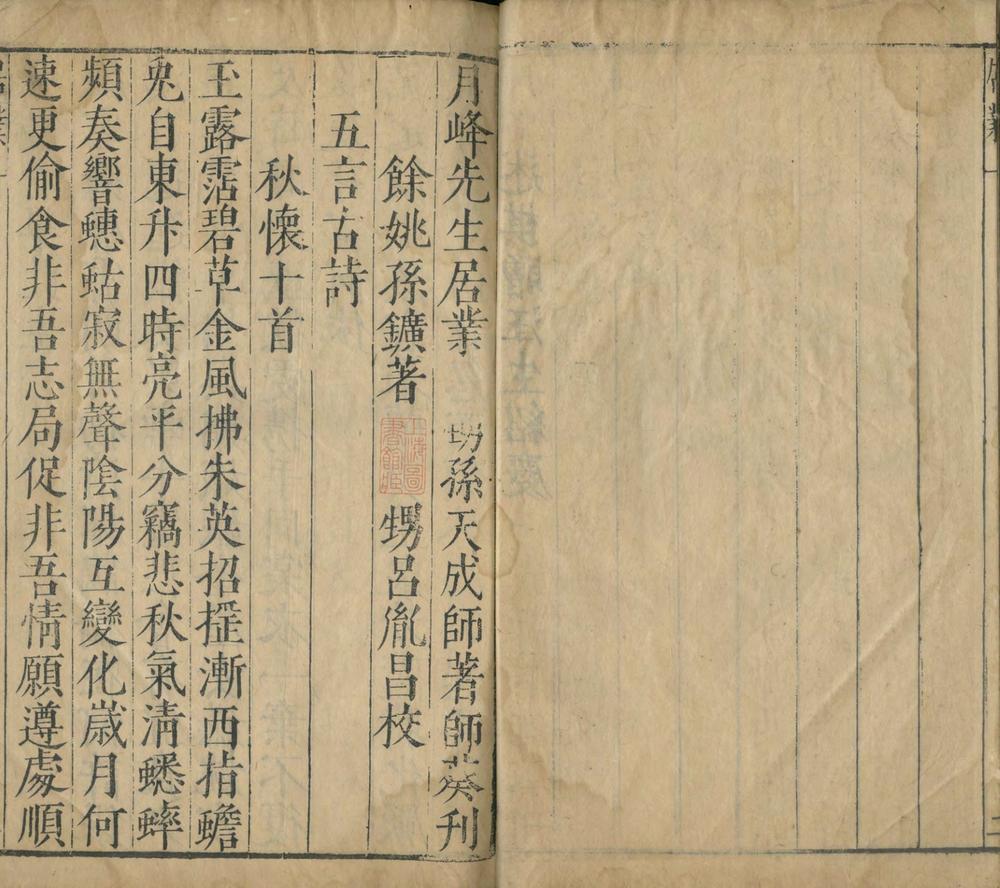 月峰先生居業 孫天成師著師葵刊
餘姚孫鑛著 甥呂胤昌校
五言古詩
秋懷十首
玉露霑碧草金風拂朱英招搖漸西指蟾
兔自東升四時亮平分竊悲秋氣清蟋蟀
頻奏響蟪蛄寂無聲陰陽互變化歲月何
速更偷食非吾志局促非吾情願遵處順